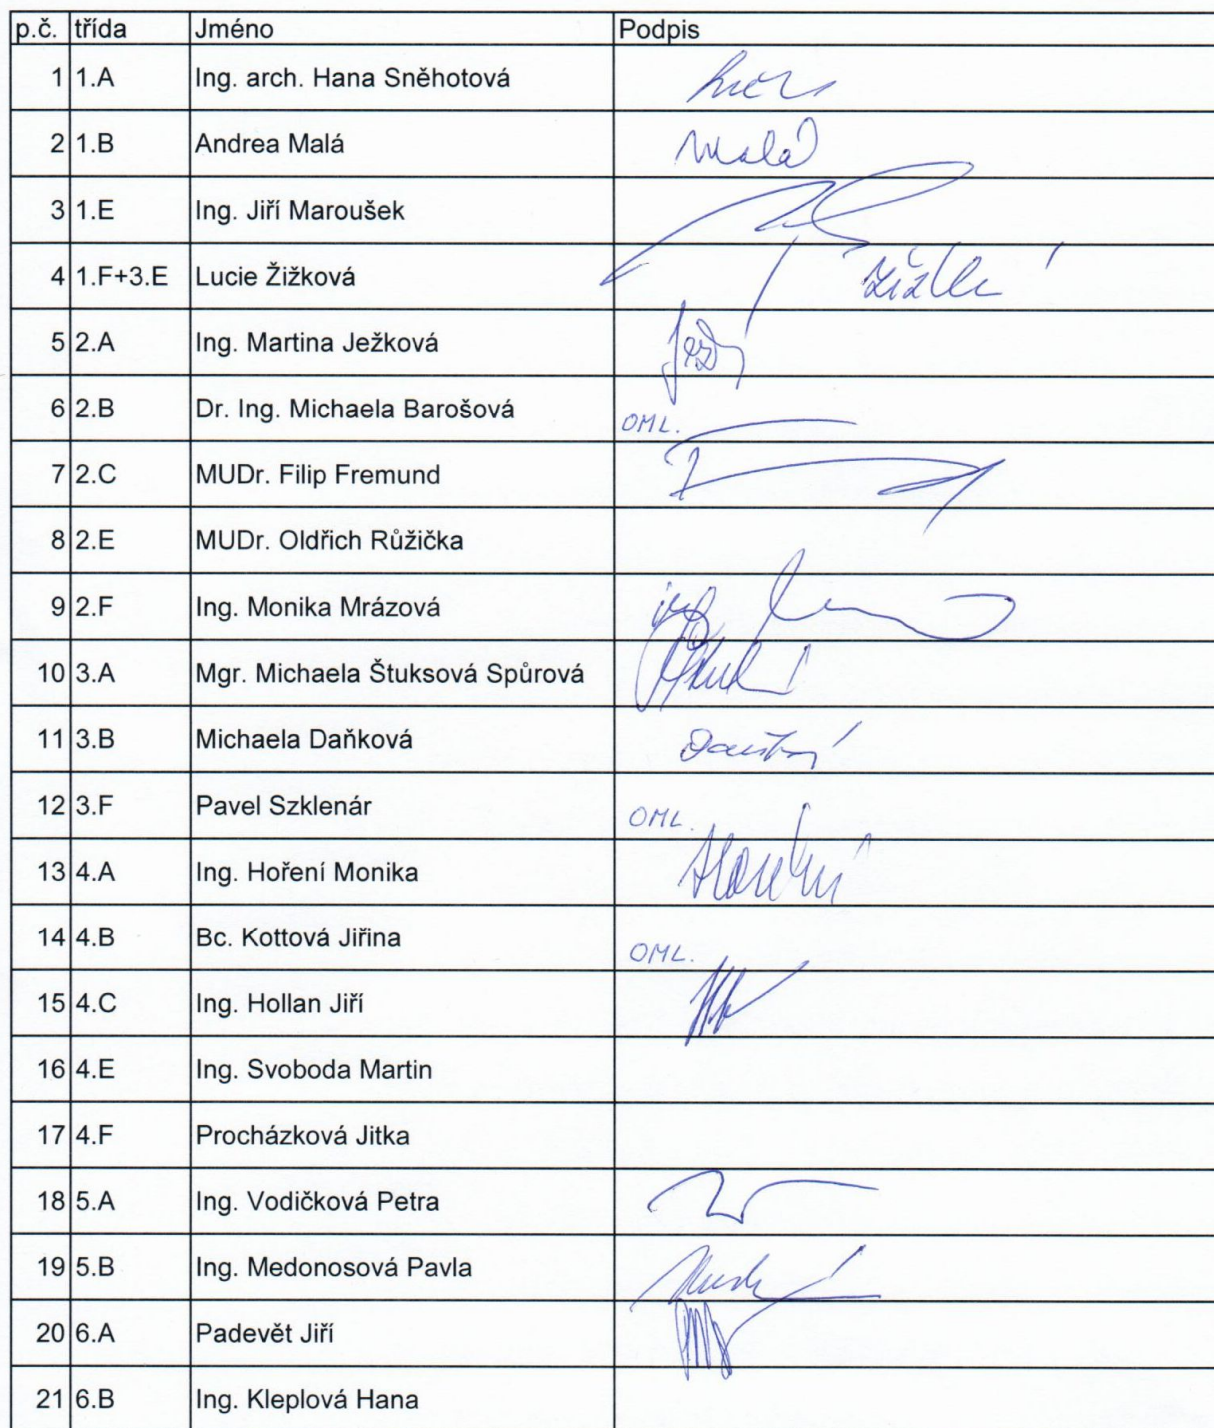 p.č. třída Jméno Podpis
1 1.A Ing. arch. Hana Sněhotová
2 1.B Andrea Malá Malá
3 1.E Ing. Jiří Maroušek
4 1.F+3.E Lucie Žižková
5 2.A Ing. Martina Ježková
6 2.B Dr. Ing. Michaela Barošová OML.
7 2.C MUDr. Filip Fremund
8 2.E MUDr. Oldřich Růžička
9 2.F Ing. Monika Mrázová
10 3.A Mgr. Michaela Štuksová Spůrová
11 3.B Michaela Daňková
12 3.F Pavel Szklenár OML.
13 4.A Ing. Hoření Monika
14 4.B Bc. Kottová Jiřina OML.
15 4.C Ing. Hollan Jiří
16 4.E Ing. Svoboda Martin
17 4.F Procházková Jitka
18 5.A Ing. Vodičková Petra
19 5.B Ing. Medonosová Pavla
20 6.A Padevět Jiří
21 6.B Ing. Kleplová Hana